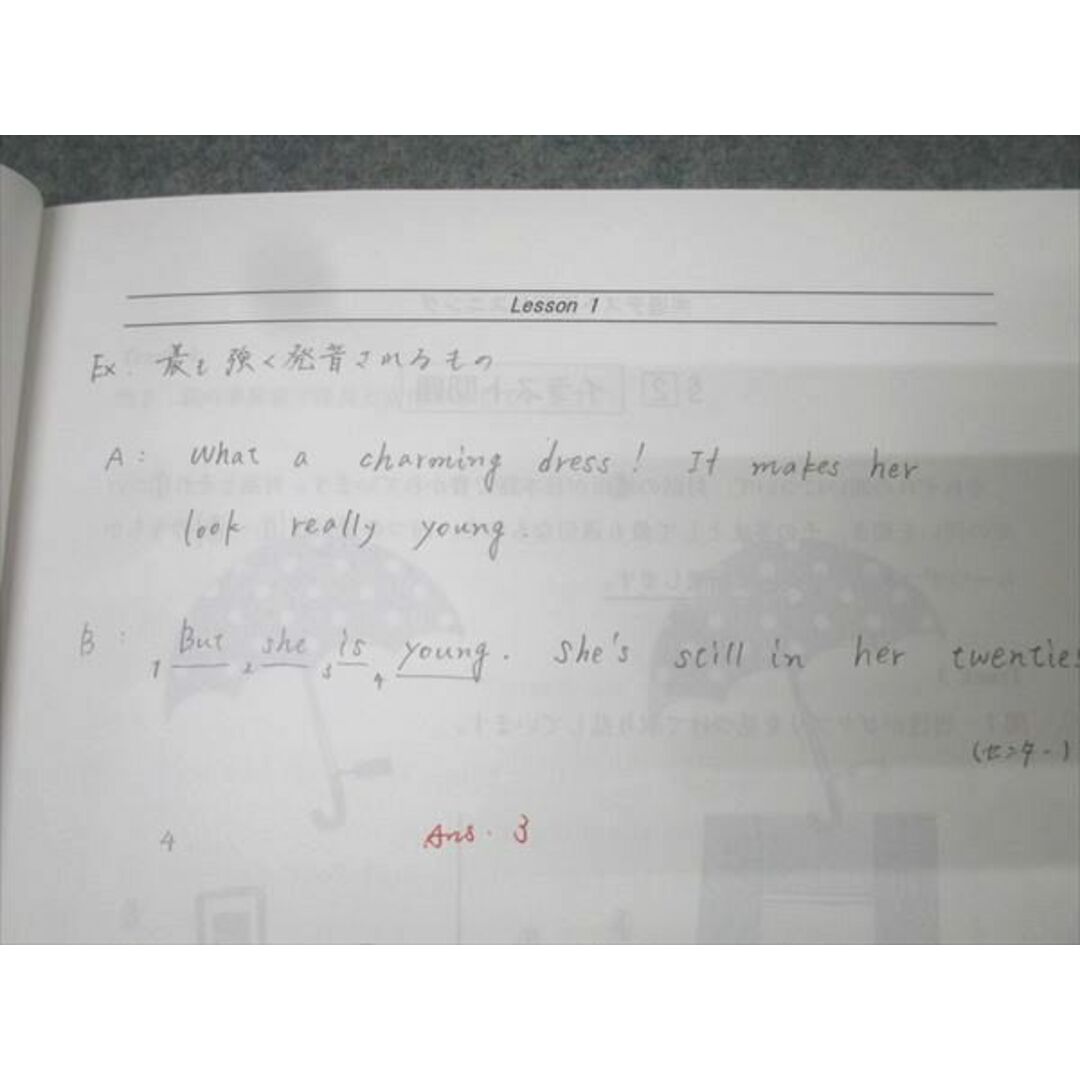 Lesson 1
Ex. 最も強く発音されるもの
A : What a charming dress! It makes her
look really young.
B : 1 But 2 she 3 is 4 young. She's still in her twenties
(センター)
4 Ans. 3